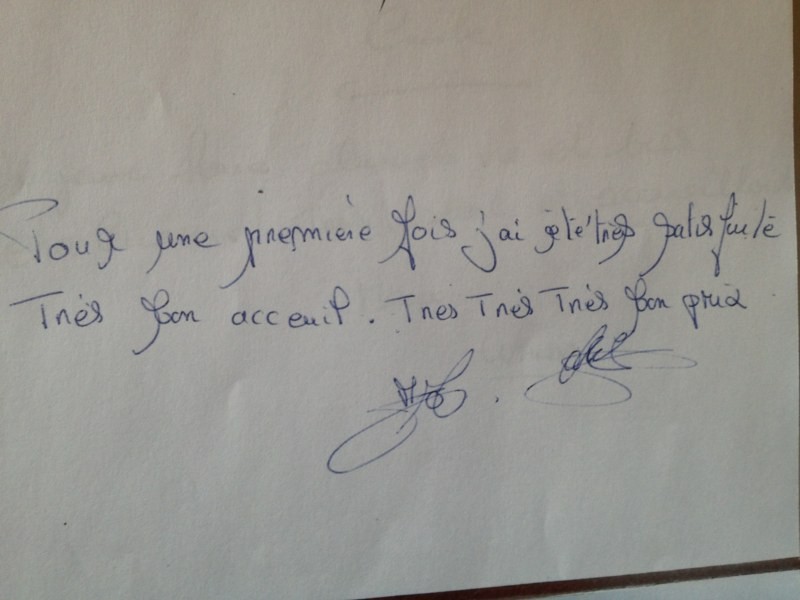 Pour une première fois j'ai été très satisfaite
Très bon acceuil. Tres Très Très bon prix